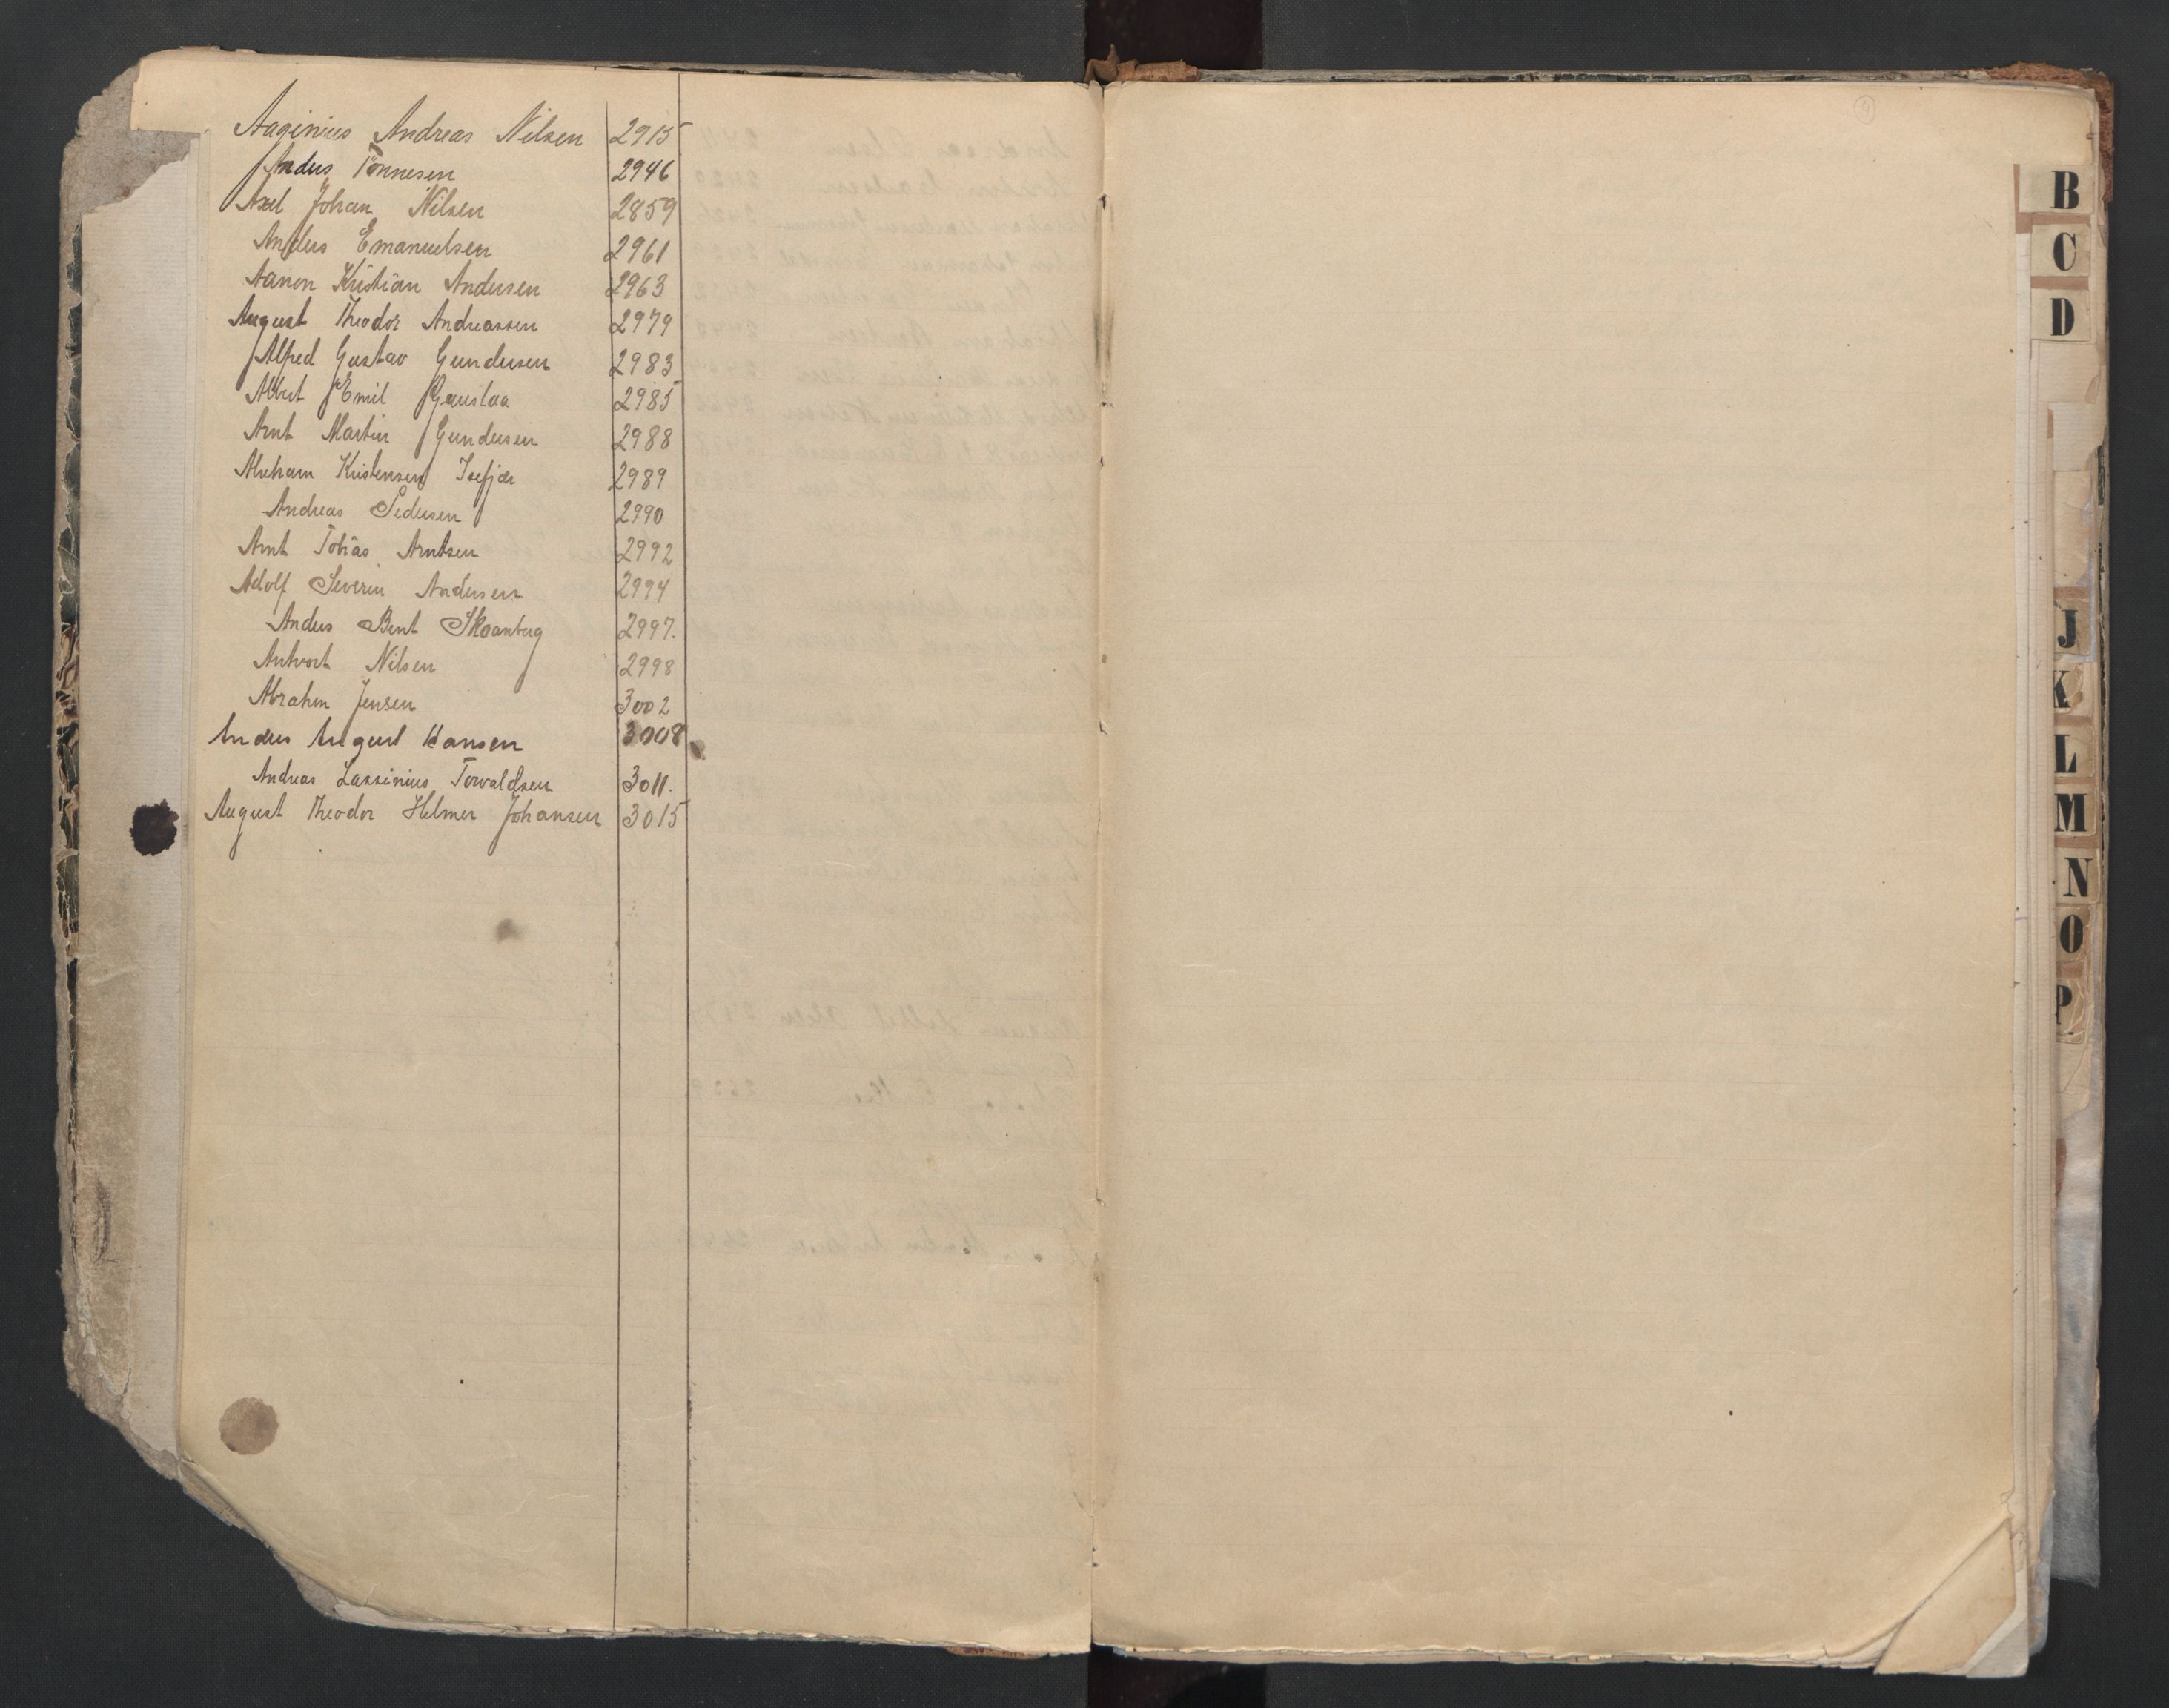 Aaginius Andreas Nilsen 2915
Anders Tönnesen 2946
Axel Johan Nilsen 2859
Anders Emanuelsen 2961
Aanon Kristian Andersen 2963
August Theodor Andreassen 2979
Alfred Gustav Gundersen 2983
Albert Emil Gauslaa 2985
Arnt Martin Gundersen 2988
Abraham Kristensen Isefjær 2989
Andreas Pedersen 2990
Arnt Tobias Arntsen 2992
Adolf Severin Andersen 2994
Anders Bent Skaanberg 2997.
Antvort Nilsen 2998
Abrahm Jensen 3002
Anders August Hansen 3008
Andreas Lassinius Torvaldsen 3011.
August Theodor Helmer Johansen 3015
B
C
D
J
K
L
M
N
O
P